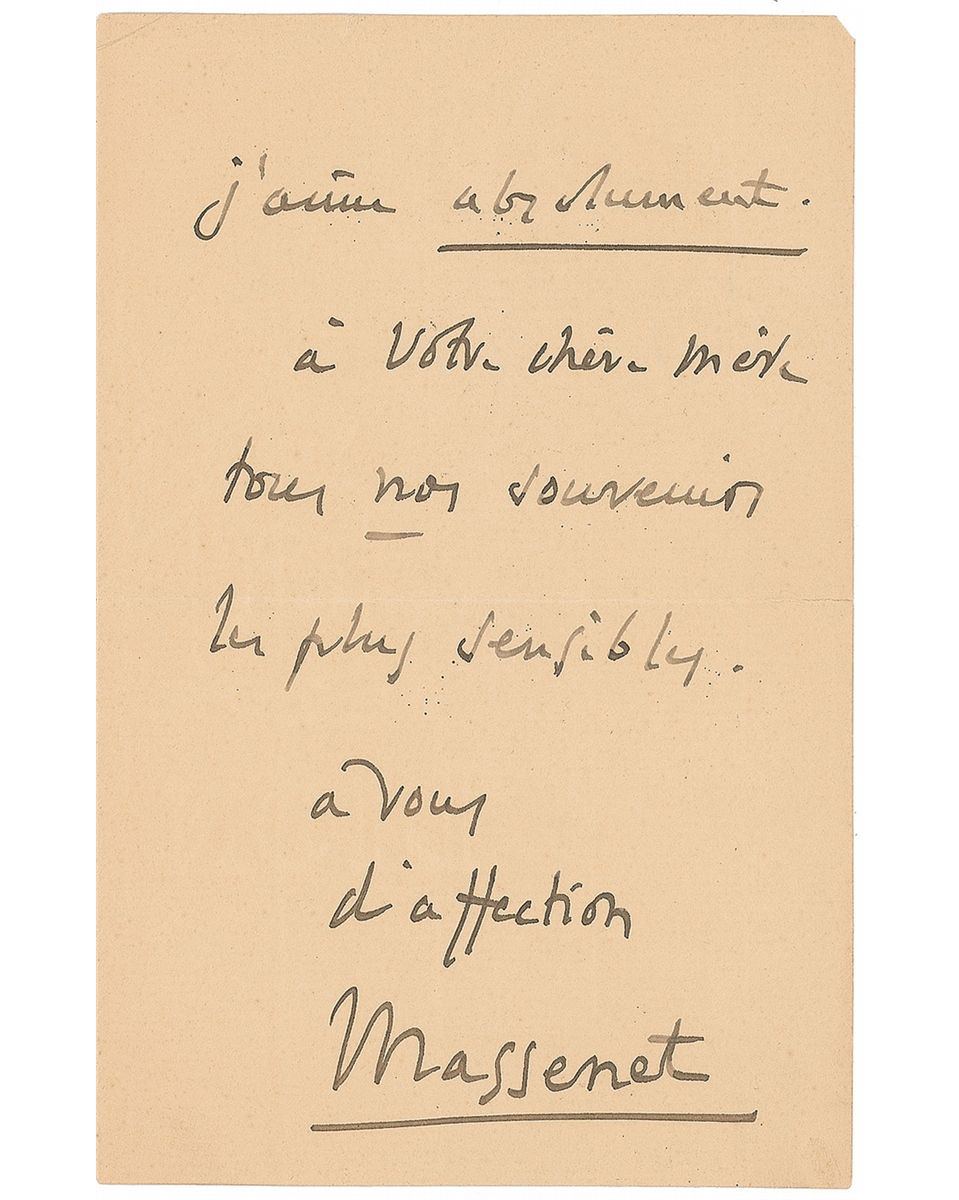 j'aime absolument.
à Votre chère mère
tous nos souvenirs
les plus sensibles.
à vous
d'affection
Massenet